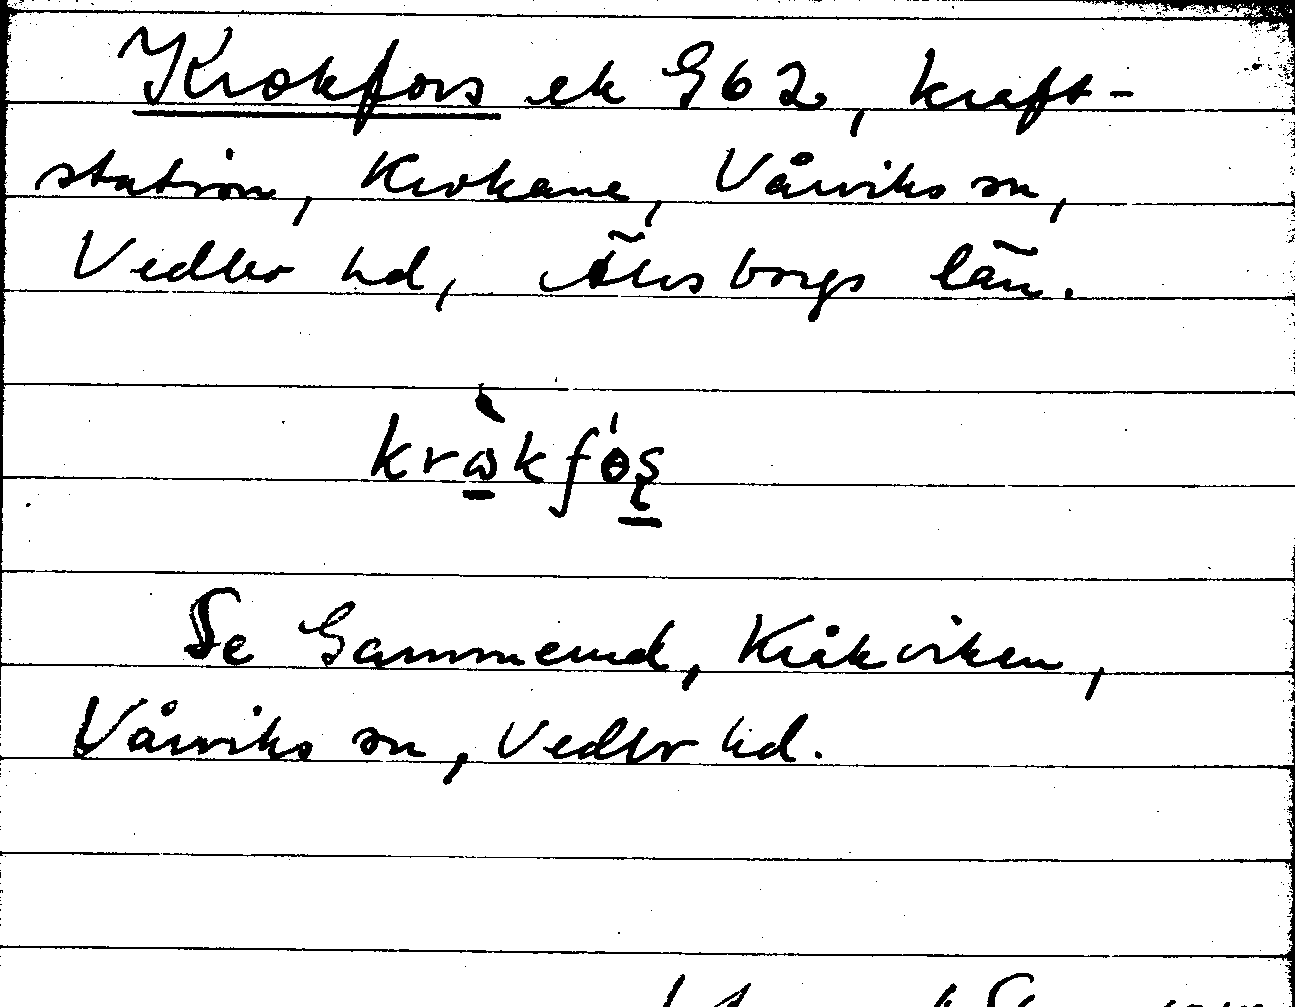 Krokfors ek G62, kraft-
station, Krokane, Vårviks sn,
Vedbo hd, Älvsborgs län.
kròkfo̍ş
Se Gammelund, Kråkviken,
Vårviks sn, Vedbo hd.